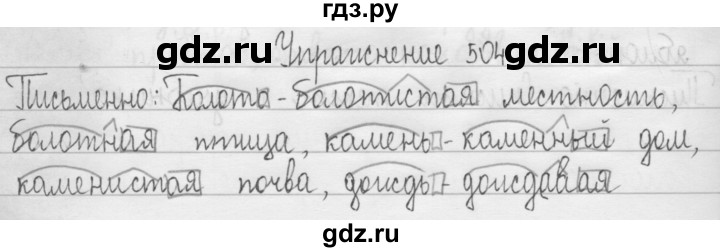 гдз.ру
gdz.ru gdz.ru
Упражнение 504
Письменно: Болото - болотистая местность,
болотная птица, камень - каменный дом,
каменистая почва, дождь - дождавая
gdz.ru gdz.ru